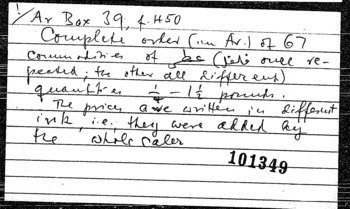 1/Ar Box 39, f. 450
Complete order (in Ar.) of 67
commodities of عطر (once re-
peated, the other all different)
quantities ¼ – 1½ pounds.
The prices are written in different
ink, i.e. they were added by
the whole saler
101349